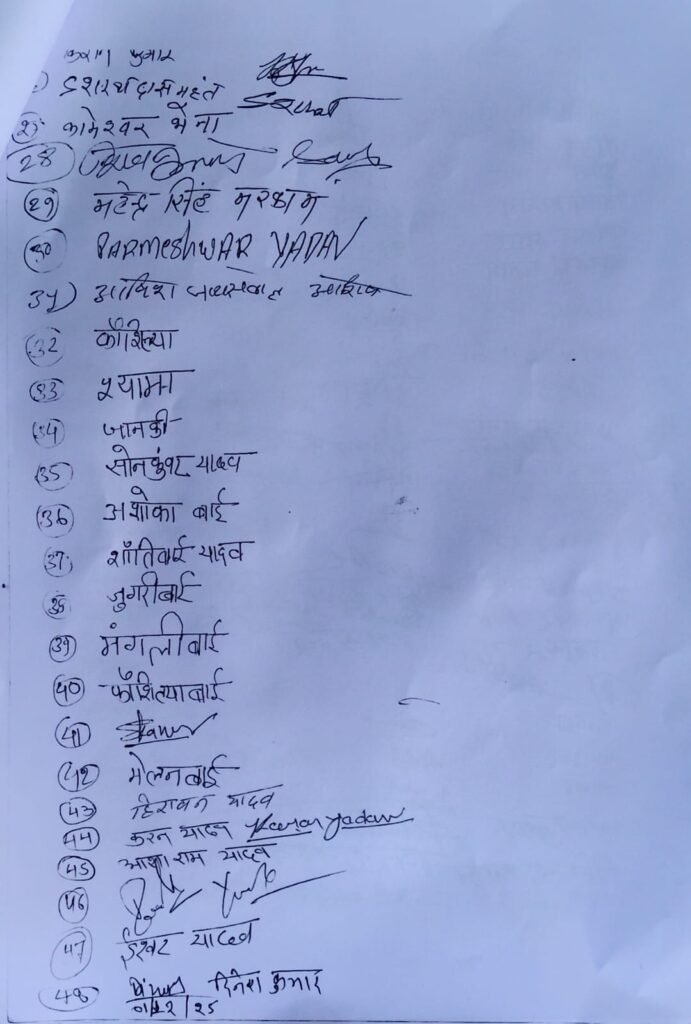 कुमार
दशरथ दास महंत
कामेश्वर मैना
28
29 महेन्द्र सिंह मरकाम
30 PARMESHWAR YADAV
31) आशिष जयसवाल
32 कौशिल्या
33 श्यामा
34 जानकी
35 सोनकुंवर यादव
36 अशोका बाई
37 शाँतिबाई यादव
38 जुगरीबाई
39 मंगलीबाई
40 कौशिल्याबाई
41
42 मेलनबाई
43 हिरावन यादव
44 करन यादव Karan yadav
45 आशाराम यादव
46
47 ईश्वर यादव
48 दिनेश कुमार